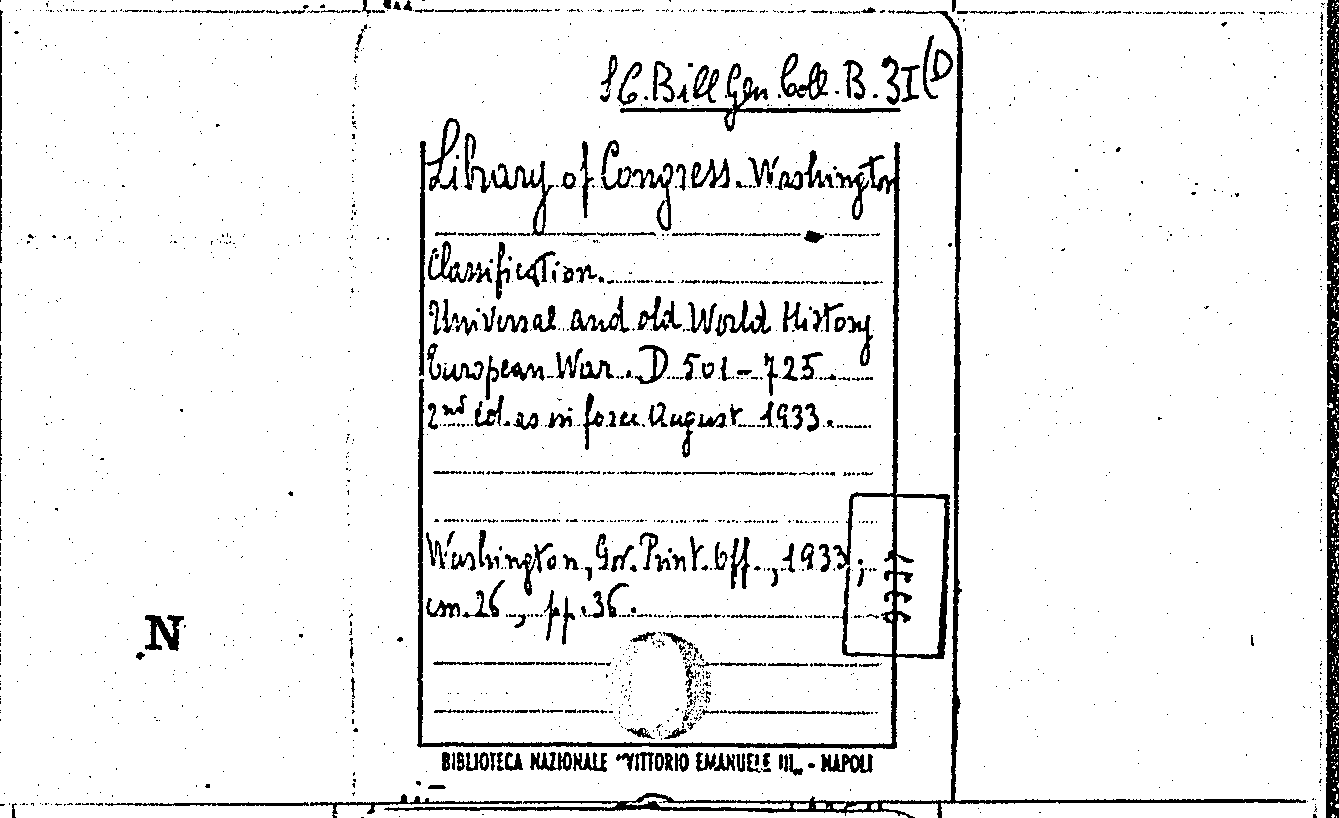 S.C. Bill Gen Coll. B. 3I (D
Library of Congress. Washington
Classification.
Universal and old World History
European War. D 501-725.
2nd ed. as in force August 1933.
Washington, Gov. Print. Off., 1933;
cm. 26, pp. 36.
N
BIBLIOTECA NAZIONALE "VITTORIO EMANUELE III„ - NAPOLI